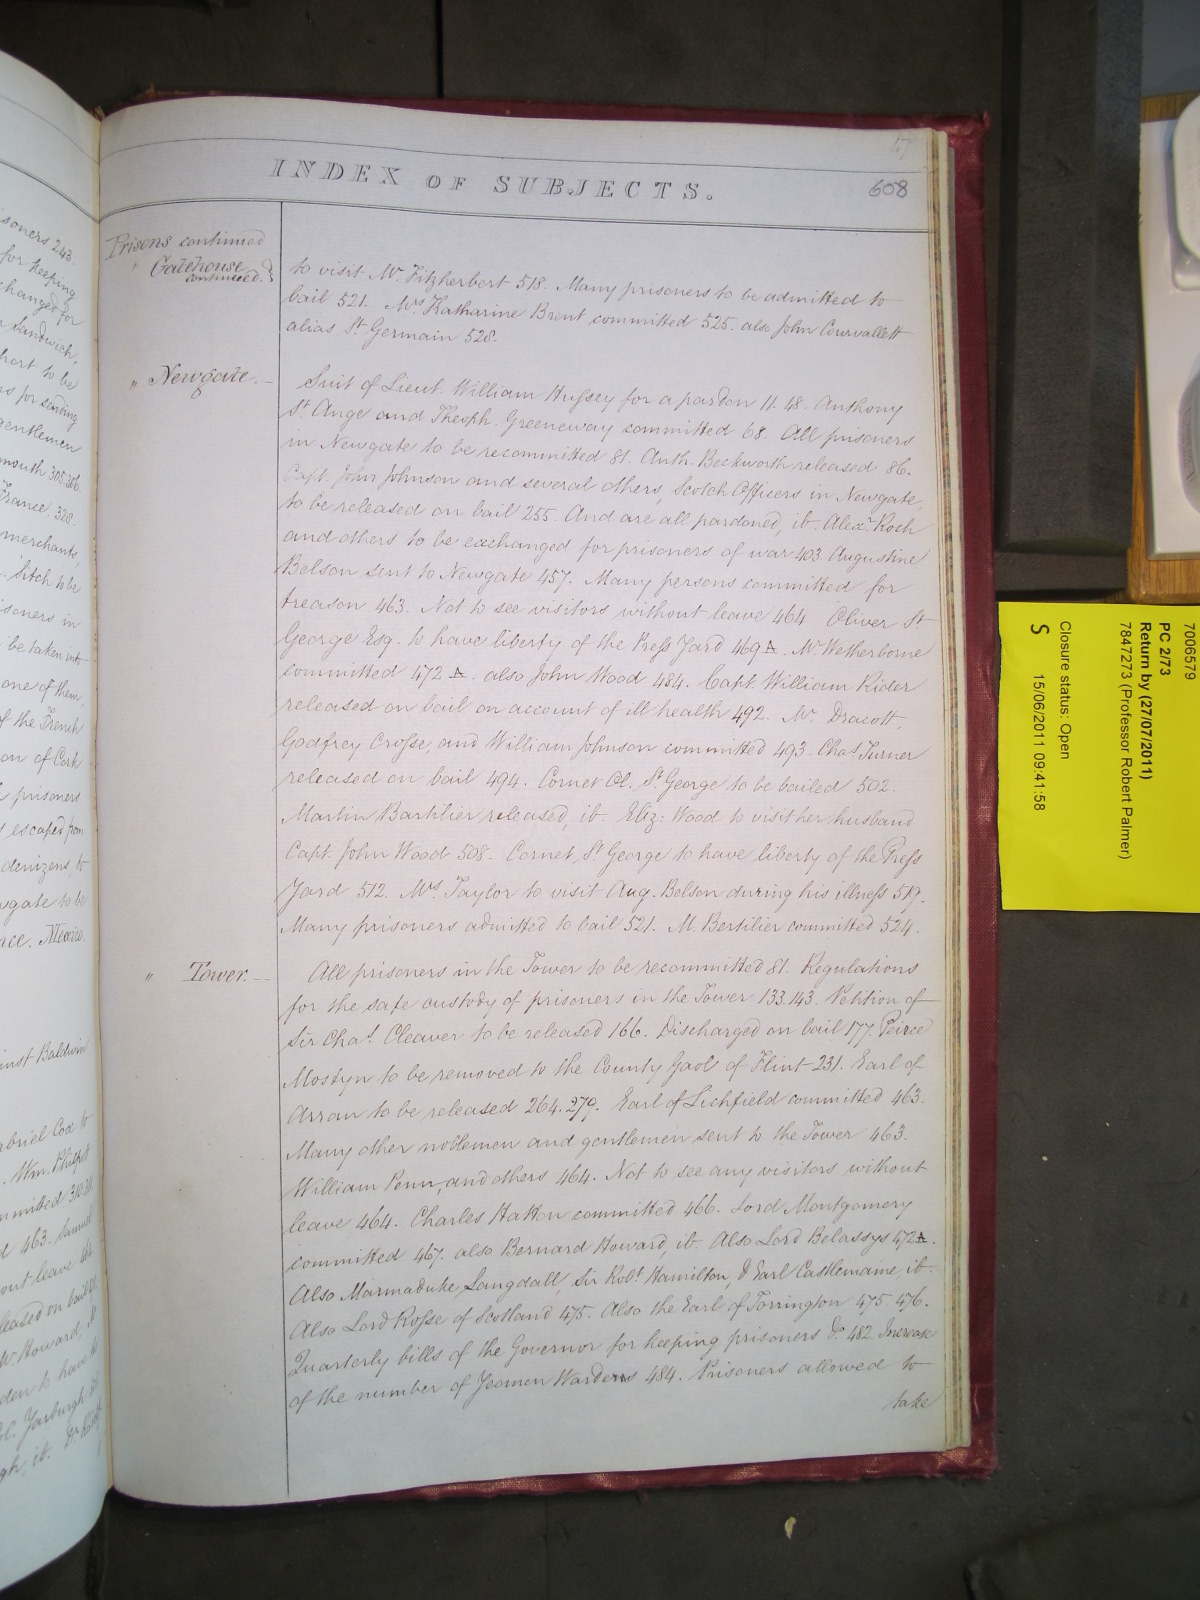 INDEX OF SUBJECTS.
608
Prisons continued
" Gatehouse
continued.
to visit Mr. Fitzherbert 518. Many prisoners to be admitted to
bail 521. Mrs. Katharine Brent committed 525. also John Courvallett
alias St. Germain 528.
" Newgate.—
Suit of Lieut. William Hussey for a pardon 11. 48. Anthony
St. Ange and Theoph. Greeneway committed 68. All prisoners
in Newgate to be recommitted 81. Anth. Beckworth released 86.
Capt. John Johnson and several others, Scotch Officers in Newgate,
to be released on bail 255. And are all pardoned, ib. Alexr. Koch
and others to be exchanged for prisoners of war 403. Augustine
Belson sent to Newgate 457. Many persons committed for
treason 463. Not to see visitors without leave 464 Oliver St.
George Esq. to have liberty of the Press Yard 469 A. Mr. Wetherborne
committed 472 A. also John Wood 484. Capt. William Rider
released on bail on account of ill health 492. Mr. Dracott,
Godfrey Crosse, and William Johnson committed 493. Chas. Turner
released on bail 494. Cornet Ol. St. George to be bailed 502.
Martin Bartilier released, ib. Eliz: Wood to visit her husband
Capt. John Wood 508. Cornet St. George to have liberty of the Press
Yard 512. Mrs. Taylor to visit Aug. Belson during his illness 519.
Many prisoners admitted to bail 521. M. Bertilier committed 524.
" Tower.—
All prisoners in the Tower to be recommitted 81. Regulations
for the safe custody of prisoners in the Tower 133. 143. Petition of
Sir Chas. Cleaver to be released 166. Discharged on bail 177. Peirce
Mostyn to be removed to the County Gaol of Flint 231. Earl of
Arran to be released 264. 279. Earl of Lichfield committed 463.
Many other noblemen and gentlemen sent to the Tower 463.
William Penn, and others 464. Not to see any visitors without
leave 464. Charles Hatton committed 466. Lord Montgomery
committed 467. also Bernard Howard, ib. Also Lord Belassys 472 A.
Also Marmaduke Langdall, Sir Robt. Hamilton, & Earl Castlemaine, ib.
Also Lord Rosse of Scotland 475. Also the Earl of Torrington 475. 476.
Quarterly bills of the Governor for keeping prisoners &c. 482. Increase
of the number of Yeomen Warders 484. Prisoners allowed to
take
7006579
PC 2/73
Return by (27/07/2011)
7847273 (Professor Robert Palmer)
Closure status: Open
S 15/06/2011 09:41:58
soners 243.
for keeping
changed for
Sandwich,
port to be
for sending
gentlemen
mouth 305. 306.
France. 328.
merchants,
Sitch to be
soners in
be taken into
one of them,
f the French
on of Cork
prisoners
escaped from
denizens, to
wgate to be
nce. Mexico.
inst Baldwin
abriel Cox to
. Wm. Philpot
mmitted 310.
d 463. Samuel
out leave
leased on bail
W. Howard, ib
den to have
Yarburgh
gh, ib. Dr.